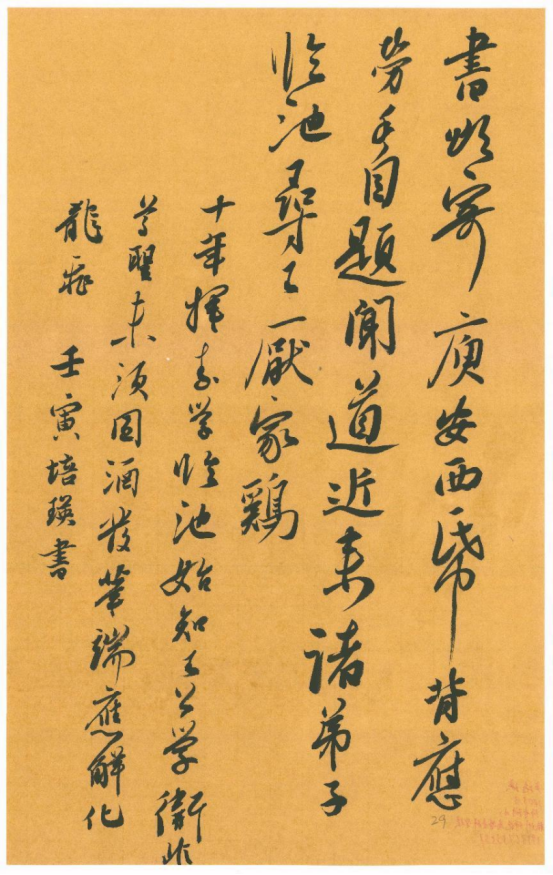 書寄庾安西帋背應
勞手自題聞道近來諸弟子
臨池尋已厭家鷄
十年揮素学臨池始知王公学衛非
草聖未須因酒發筆端應解化
龍飛 壬寅培瑛書
29